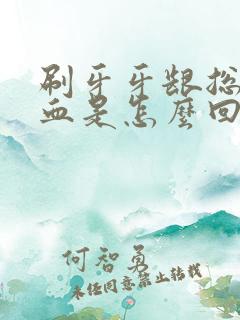 刷牙牙龈总
血是怎麽回
何智勇
未经同意禁止转载